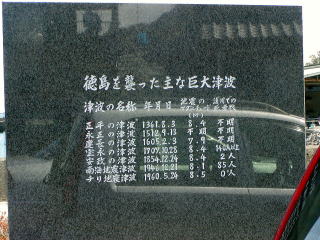 徳島を襲った主な巨大津波
津波の名称 年月日 地震の マグニチュード(M) 浅川での 死者数
正平の津波 1361.8.3 8.4 不明
永正の津波 1512.9.13 不明 不明
慶長の津波 1605.2.3 7.9 不明
宝永の津波 1707.10.28 8.4 140人以上
安政の津波 1854.12.24 8.4 2人
南海地震津波 1946.12.21 8.1 85人
チリ地震津波 1960.5.24 8.5 0人